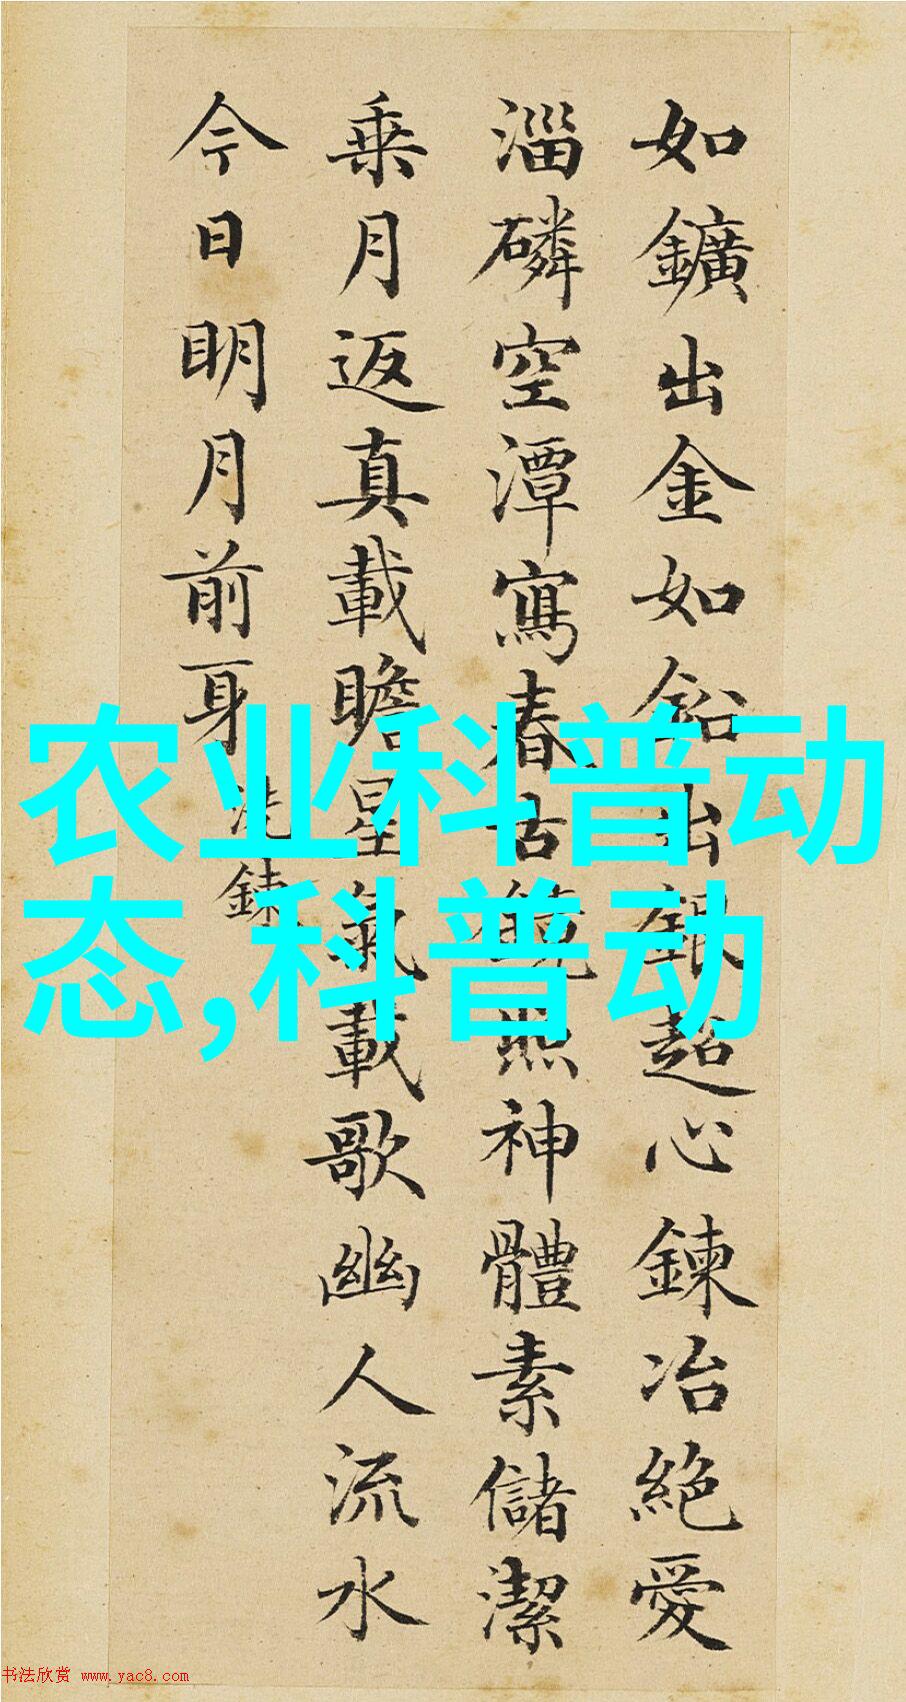 如鑛出金如鉛出銀超心鍊冶絕愛
淄磷空潭寫春古鏡照神體素儲潔
乗月返真載瞻星氣載歌幽人流水
今日明月前身
洗鍊
农业科普动
态,科普动
书法欣赏 www.yac8.com